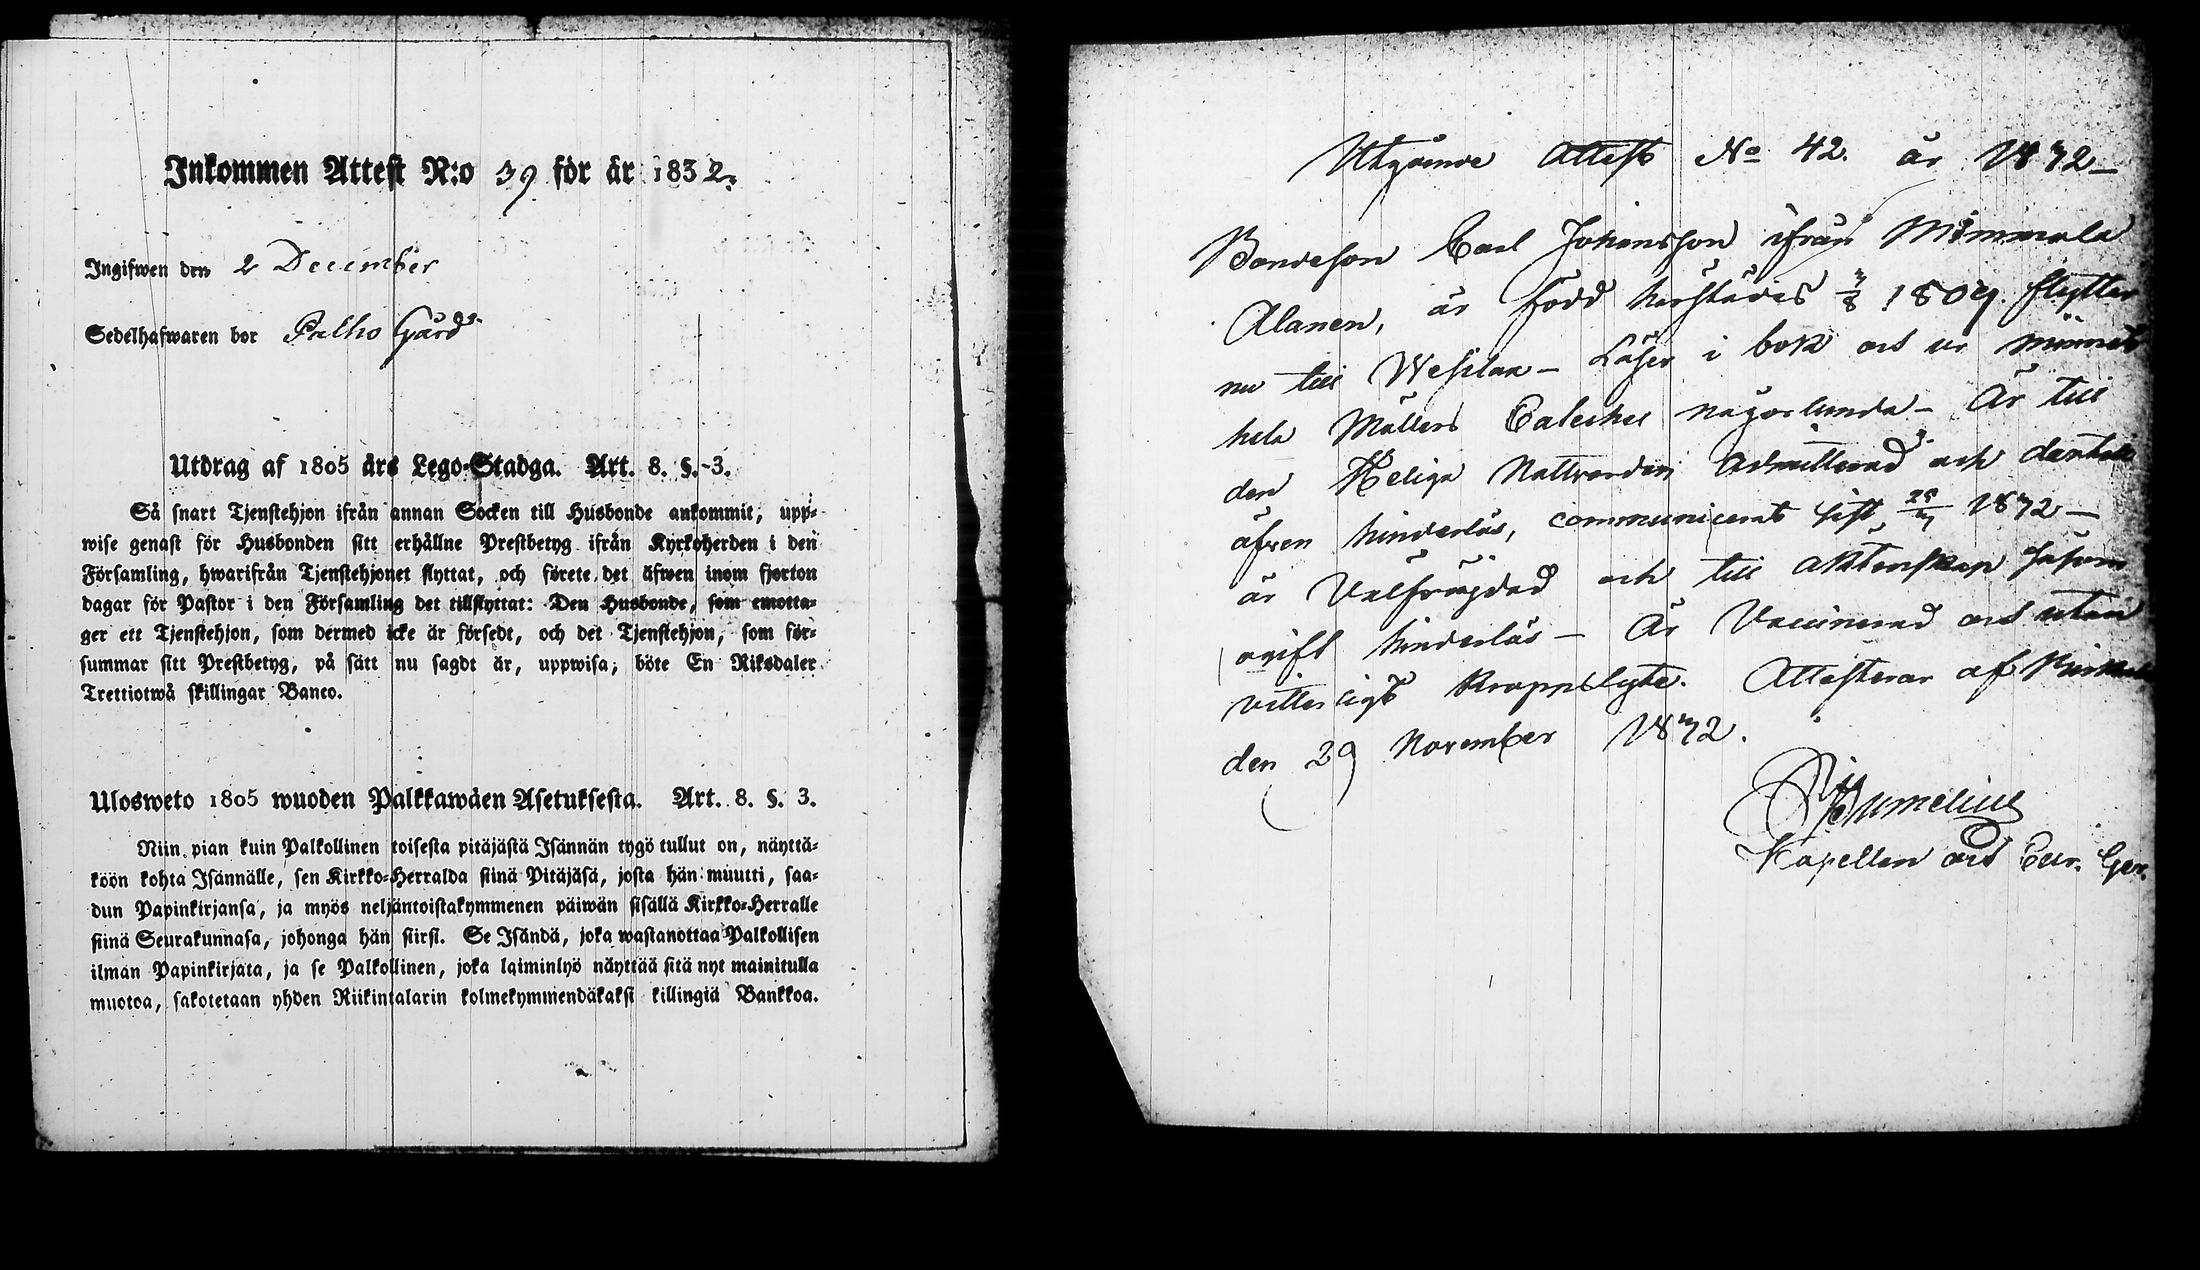 Inkommen Attest N:o 39 för år 1832.
Ingifwen den 2 December
Sedelhafwaren bor Palho Gård
Utdrag af 1805 års Lego-Stadga. Art. 8. §. 3.
Så snart Tjenstehjon ifrån annan Socken till Husbonde ankommit, upp-
wise genast för Husbonden sitt erhållne Prestbetyg ifrån Kyrkoherden i den
Församling, hwarifrån Tjenstehjonet flyttat, och förete det äfwen inom fjorton
dagar för Pastor i den Församling det tillflyttat: Den Husbonde, som emotta-
ger ett Tjenstehjon, som dermed icke är försedt, och det Tjenstehjon, som för-
summar sitt Prestbetyg, på sätt nu sagdt är, uppwisa, böte En Riksdaler
Trettiotwå skillingar Banco.
Ulosweto 1805 wuoden Palkkawäen Asetuksesta. Art. 8. §. 3.
Niin pian kuin Palkollinen toisesta pitäjästä Isännän tygö tullut on, näyttä-
köön kohta Isännälle, sen Kirkko-Herralda siinä Pitäjäsä, josta hän muutti, saa-
dun Papinkirjansa, ja myös neljäntoistakymmenen päiwän sisällä Kirkko-Herralle
siinä Seurakunnasa, johonga hän siirsi. Se Isändä, joka wastanottaa Palkollisen
ilman Papinkirjata, ja se Palkollinen, joka laiminlyö näyttää sitä nyt mainitulla
muotoa, sakotetaan yhden Riikintalarin kolmekymmendäkaksi killingiä Bankkoa.
Utgående Attest No 42. år 1832
Bondeson Carl Johansson ifrån
Alanen, är född härstädes 1809. flyttar
nu till Wesilax - Läser i bok och ur minnet
hela Möllers Cateches någorlunda - Är till
den Heliga Nattvarden Admitterad och dertill
äfven hinderlös, communicerat sist 1832 -
är Välfräjdad och till äktenskap såsom
ogift hinderlös - Är Vaccinerad och utan
vitterligt kroppslyte. Attesterar af
den 29 November 1832.
Kapellan och Cur. Ger.